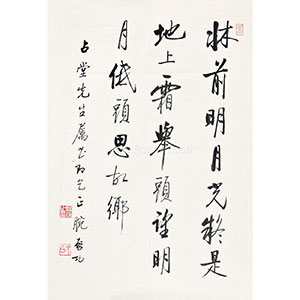 牀前明月光疑是
地上霜舉頭望明
月低頭思故鄉
占堂先生屬書即乞正腕 启功